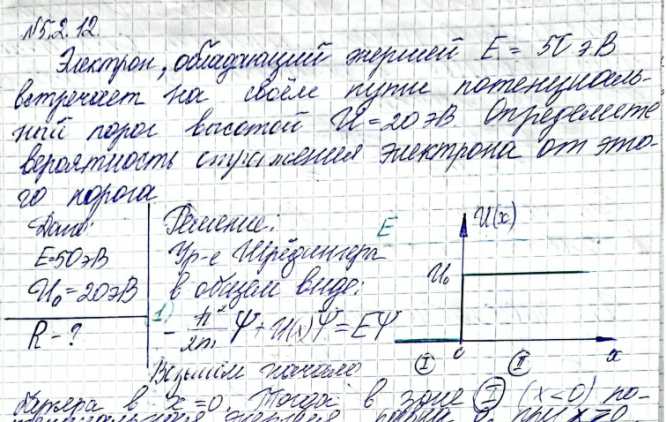 №5.2.12.
Электрон, обладающий энергией E = 50 эВ
встречает на своём пути потенциаль-
ный порог высотой U = 20 эВ. Определите
вероятность отражения электрона от это-
го порога
Дано:
E = 50 эВ
U₀ = 20 эВ
R - ?
Решение:
Ур-е Шрёдингера
в общем виде:
1) - ħ²/2m Ψ'' + U(x)Ψ = EΨ
Возьмём начало
E
U(x)
U₀
0
x
I
II
барьера в x=0. Тогда в зоне I (x<0) по-
тенциальная энергия равна 0, при x>0